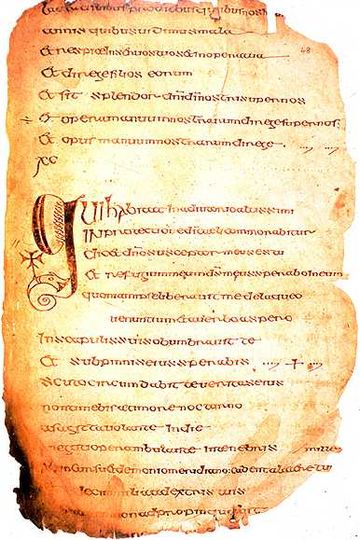 pro diebus quibus nos
annis quibus uidimus mala
Et respice in seruos tuos et in opera tua
Et dirige filios eorum
Et sit splendor dni di nostri super nos
Et opera manuum nostrarum dirige super nos
Et opus manuum nostrarum dirige
XC
Qui habitat in adiutorio altissimi
In protectione di caeli commorabitur
Dicet dno susceptor meus es tu
Et refugium meum ds meus sperabo in eum
quoniam ipse liberauit me de laqueo
uenantium et a uerbo aspero
In scapulis suis obumbrauit te
Et sub pinnis eius sperabis
Scuto circumdabit te ueritas eius
non timebis a timore nocturno
a sagitta uolante in die
negotio perambulante in tenebris mille
demonio meridiano cadent a latere tuo
decem milia a dextris tuis
non adpropinquabit